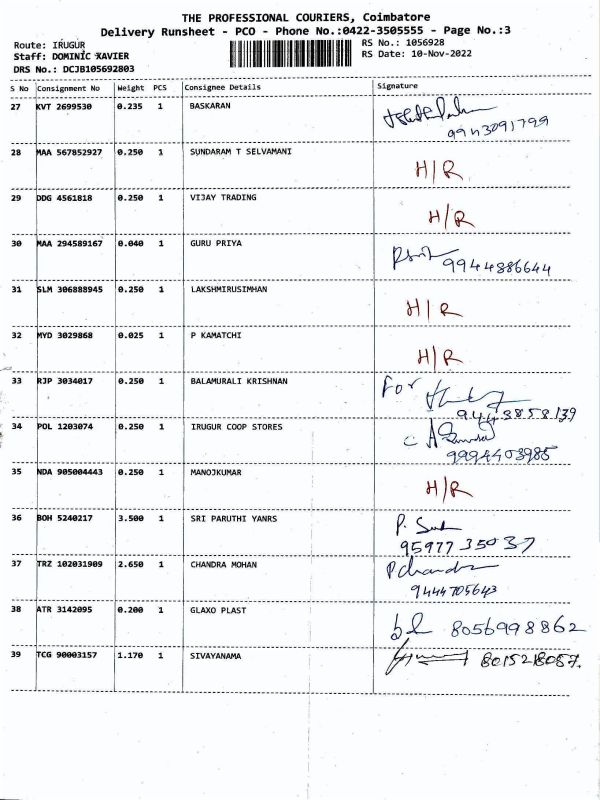 THE PROFESSIONAL COURIERS, Coimbatore
Delivery Runsheet - PCO - Phone No.:0422-3505555 - Page No.:3
Route: IRUGUR
Staff: DOMINIC XAVIER
DRS No.: DCJB105692803
RS No.: 1056928
RS Date: 10-Nov-2022
S No Consignment No Weight PCS Consignee Details Signature
27 KVT 2699530 0.235 1 BASKARAN
9943091799
28 MAA 567852927 0.250 1 SUNDARAM T SELVAMANI
H/R
29 DDG 4561818 0.250 1 VIJAY TRADING
H/R
30 MAA 294589167 0.040 1 GURU PRIYA
9944886644
31 SLM 306888945 0.250 1 LAKSHMIRUSIMHAN
H/R
32 MYD 3029868 0.025 1 P KAMATCHI
H/R
33 RJP 3034017 0.250 1 BALAMURALI KRISHNAN
For
9443858139
34 POL 1203074 0.250 1 IRUGUR COOP STORES
9994403985
35 NDA 905004443 0.250 1 MANOJKUMAR
H/R
36 BOH 5240217 3.500 1 SRI PARUTHI YANRS
95977 35037
37 TRZ 102031909 2.650 1 CHANDRA MOHAN
P Chandra
9444705643
38 ATR 3142095 0.200 1 GLAXO PLAST
8056998862
39 TCG 90003157 1.170 1 SIVAYANAMA
8015218057.